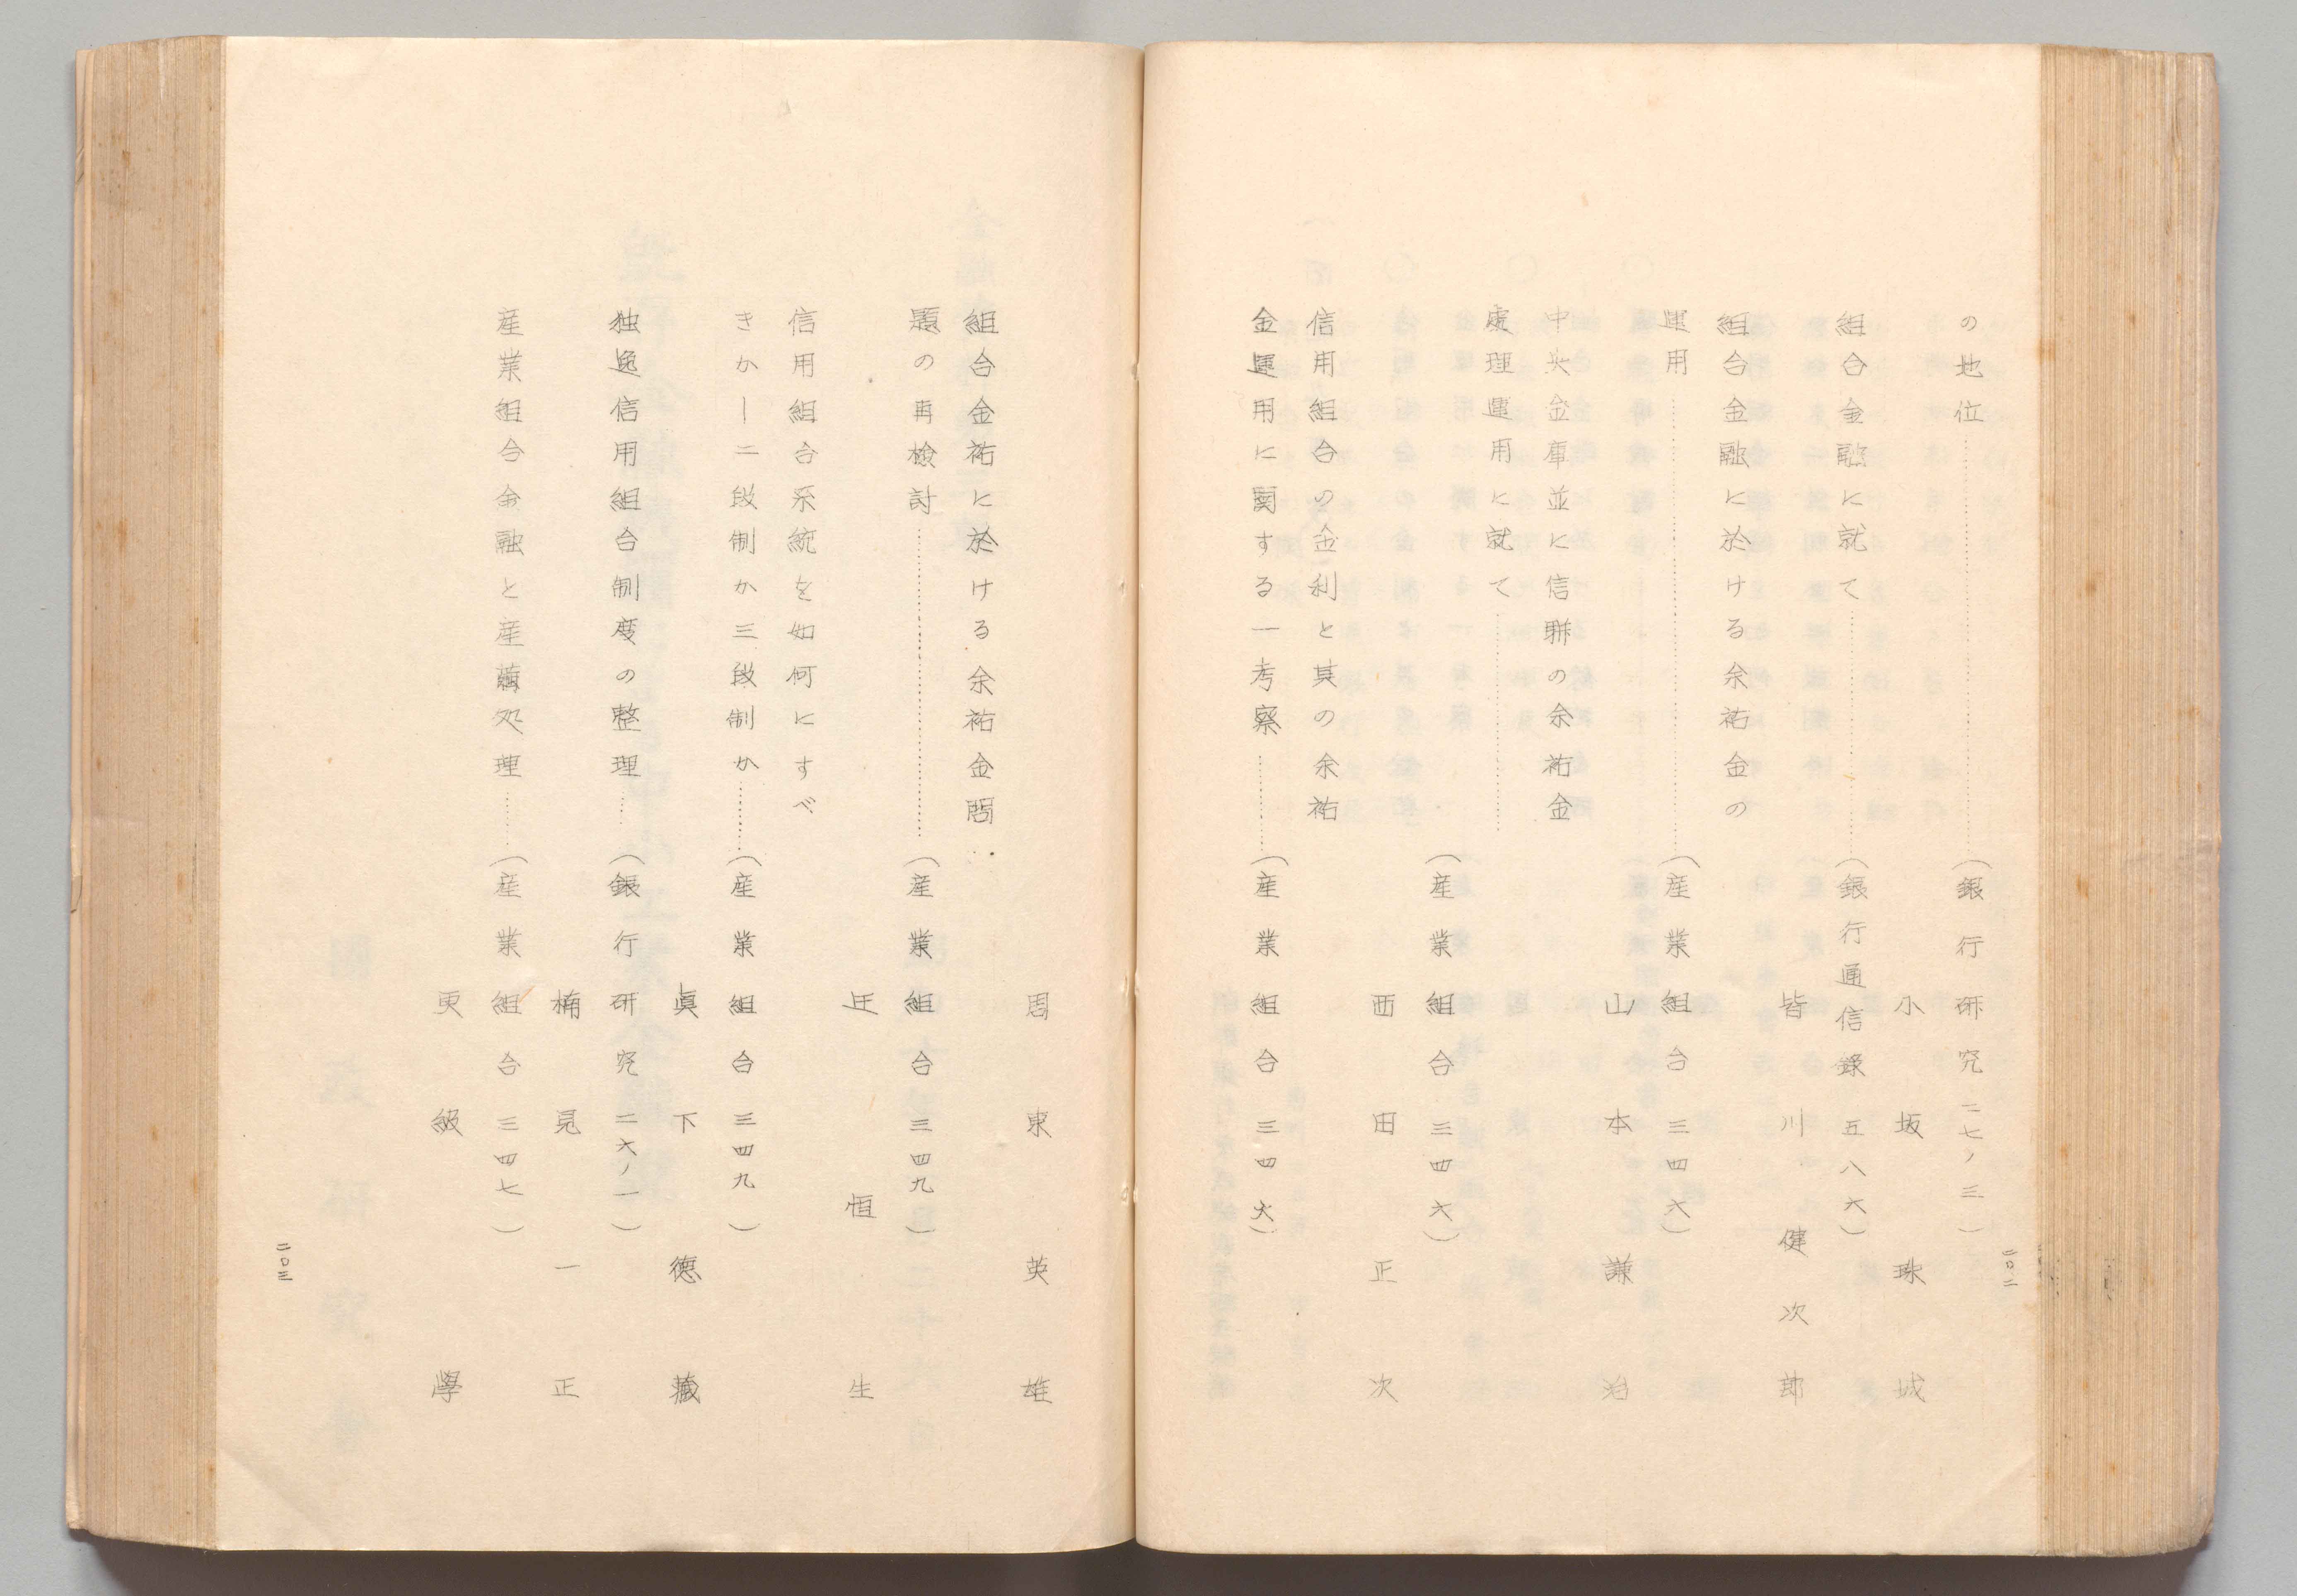 の地位……………………（銀行研究二七ノ三）
小坂珠城
組合金融に就て……………（銀行通信錄五八六）
皆川健次郎
組合金融に於ける余祐金の
運用……………………（産業組合三四六）
山本謙治
中央金庫並に信聯の余祐金
處理運用に就て……………
（産業組合三四六）
西田正次
信用組合の金利と其の余祐
金運用に関する一考察………（産業組合三四六）
二〇二
周東英雄
組合金祐に於ける余祐金問
題の再檢討……………………（産業組合三四九）
辻恒生
信用組合系統を如何にすべ
きか—二段制か三段制か………（産業組合三四九）
眞下德藏
独逸信用組合制度の整理……（銀行研究二六ノ一）
楠見一正
産業組合金融と産繭処理……（産業組合三四七）
更級學
二〇三